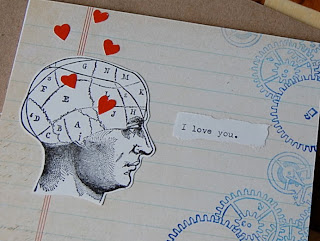 G N M
K
F
E
L
J
D
C B A
I love you.